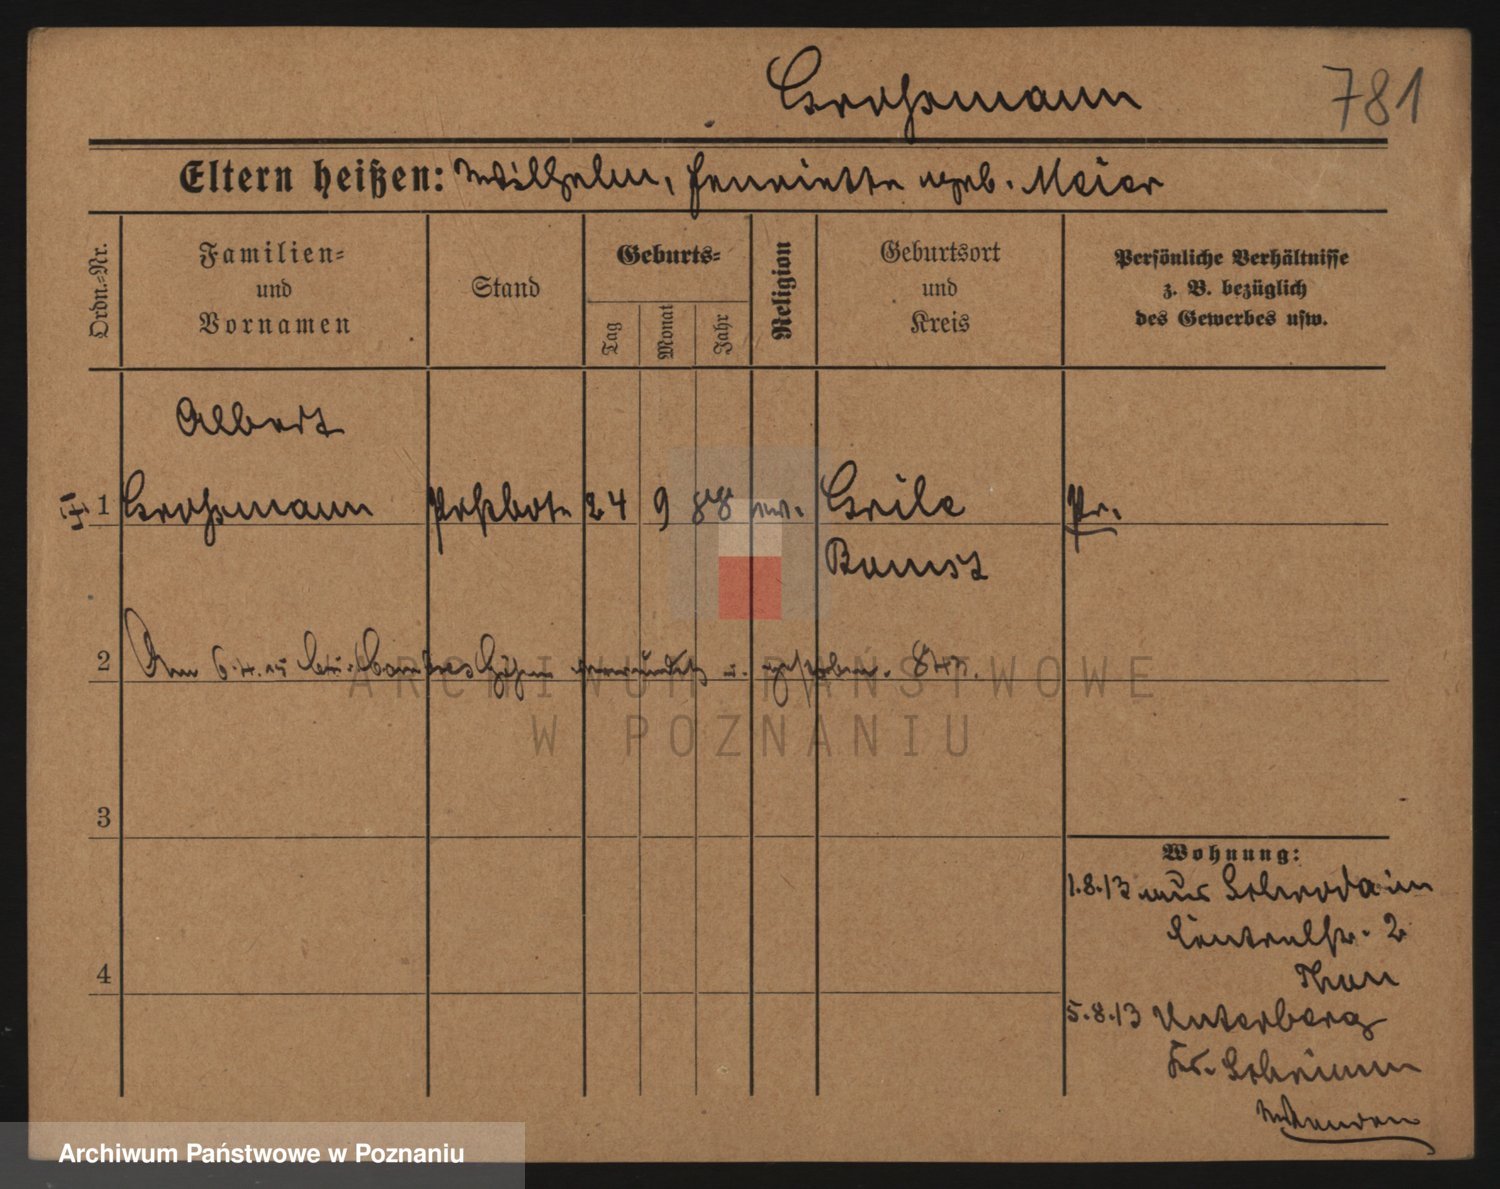 Grossmann 781
Eltern heißen: Wilhelm, Henriette geb. Meier
Ordn.-Nr.
Familien=
und
Vornamen
Stand
Geburts=
Tag
Monat
Jahr
Religion
Geburtsort
und
Kreis
Persönliche Verhältnisse
z. B. bezüglich
des Gewerbes usw.
Albert
1 Grossmann Postbote 24 9 88 ev. Groile Pr.
Bomst
2 Am 6.4.15 bei verwundet u. gestorben.
3
4
Wohnung:
1.8.13 aus Schroda in
Centralstr. 2
5.8.13 Unterberg
Kr. Schrimm
Wenden
ARCHIWUM PAŃSTWOWE
W POZNANIU
Archiwum Państwowe w Poznaniu